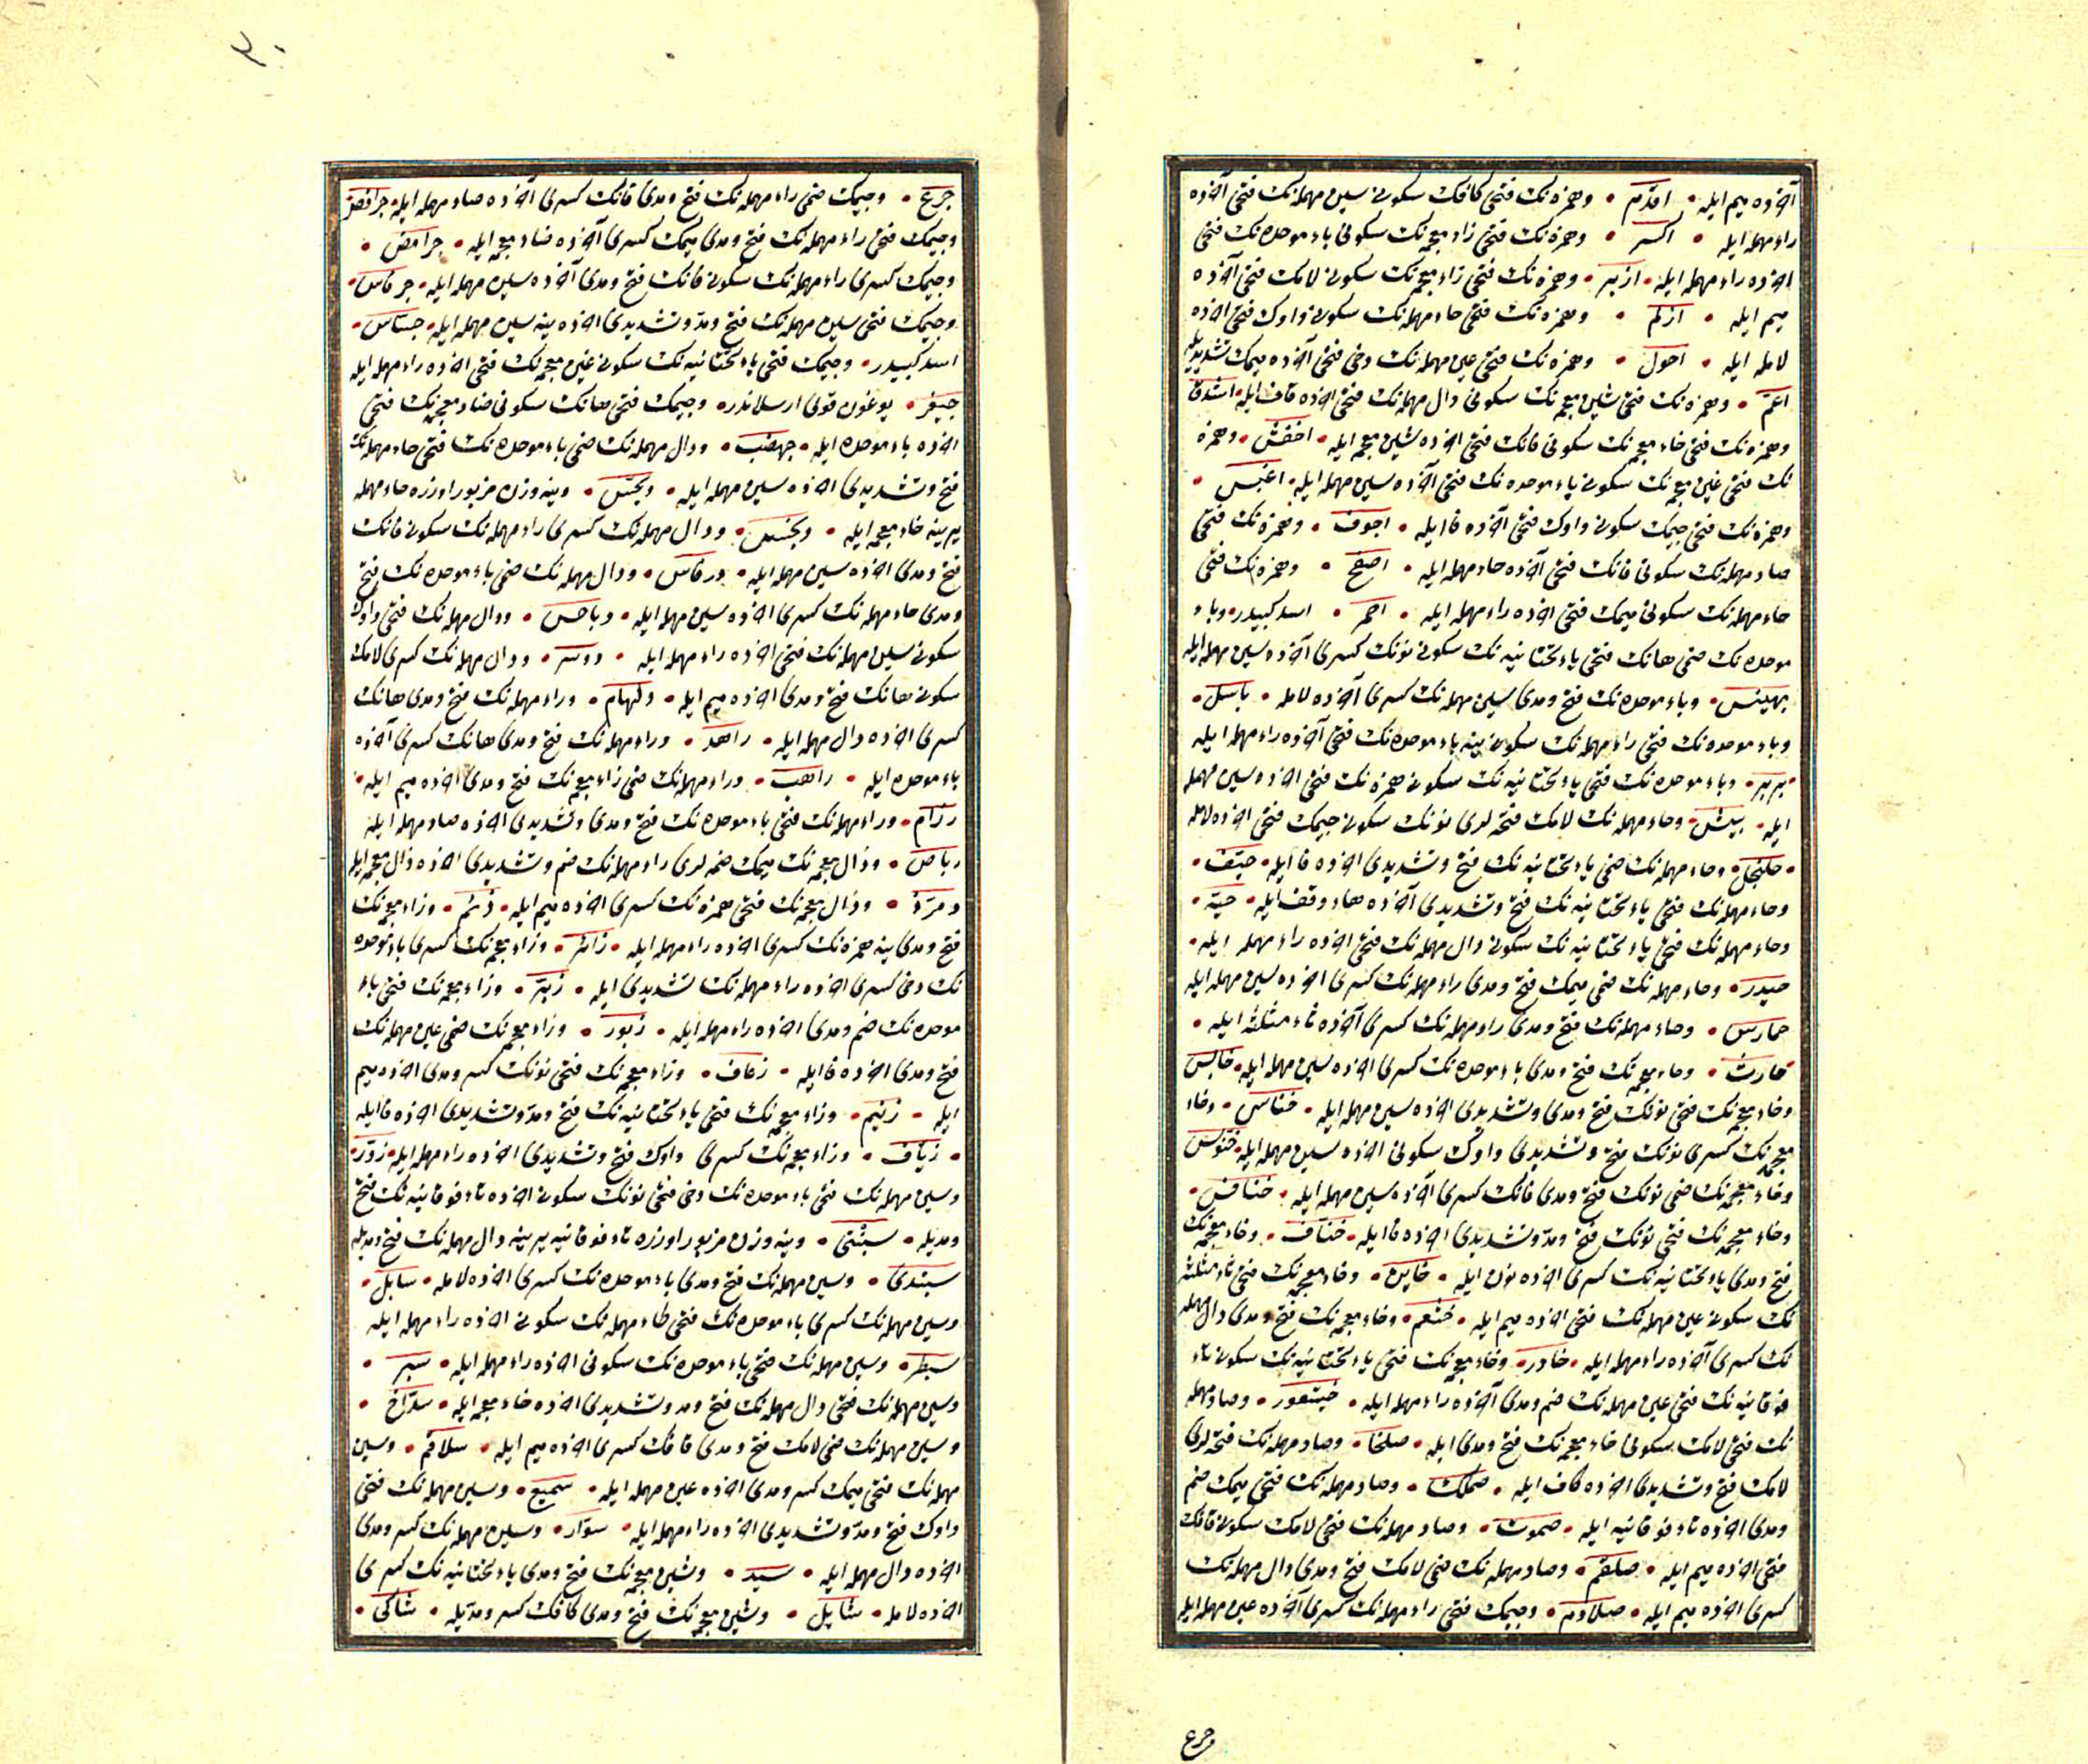 آخرده ميم ايله • اقدم • وهمزه نك فتحى كافك سكونى سين مهمله نك فتحى آخرده
راء مهمله ايله • اكسر • وهمزه نك فتحى زاء معجمه نك سكونى باء موحده نك فتحى
اخرده راء مهمله ايله • ازبر • وهمزه نك فتحى زاء معجمه نك سكونى لامك فتحى آخرده
ميم ايله • ازلم • وهمزه نك فتحى حاء مهمله نك سكونى واوك فتحى اخرده
لامله ايله • احول • وهمزه نك فتحى عين مهمله نك دخى فتحى آخرده ميمك تشديديله
اعم • وهمزه نك فتحى شين معجمه نك سكونى دال مهمله نك فتحى اخرده قاف ايله • اشدق
وهمزه نك فتحى خاء معجمه نك سكونى فانك فتحى اخرده شين معجمه ايله • اخفش • وهمزه
نك فتحى غين معجمه نك سكونى باء موحده نك فتحى آخرده سين مهمله ايله • اغبس •
وهمزه نك فتحى جيمك سكونى واوك فتحى آخرده فا ايله • اجوف • وهمزه نك فتحى
صاد مهمله نك سكونى فانك فتحى آخرده حاء مهمله ايله • اصفح • وهمزه نك فتحى
حاء مهمله نك سكونى ميمك فتحى اخرده راء مهمله ايله • احمر • اسد كبيدر • وباء
موحده نك ضمى هانك فتحى ياء تحتانيه نك سكونى نونك كسرى آخرده سين مهمله ايله
بهينس • وباء موحده نك فتح ومدى سين مهمله نك كسرى آخرده لامله • باسل •
وباء موحده نك فتحى راء مهمله نك سكونى ينه باء موحده نك فتحى آخرده راء مهمله ايله
• بربر • وباء موحده نك فتحى ياء تحتانيه نك سكونى همزه نك فتحى اخرده سين مهمله
ايله • بيئس • وحاء مهمله نك لامك فتحه لرى نونك سكونى جيمك فتحى اخرده لامله
• حلنجل • وحاء مهمله نك ضمى ياء تحتانيه نك فتح وتشديدى اخرده فا ايله • حيّف •
وحاء مهمله نك فتحى ياء تحتانيه نك فتح وتشديدى آخرده هاء وقف ايله • حيّة •
وحاء مهمله نك فتحى ياء تحتانيه نك سكونى دال مهمله نك فتحى اخرده راء مهمله ايله •
حيدر • وحاء مهمله نك ضمى ميمك فتح ومدى راء مهمله نك كسرى اخرده سين مهمله ايله
حمارس • وحاء مهمله نك فتح ومدى راء مهمله نك كسرى آخرده ثاء مثلثه ايله •
حارث • وخاء معجمه نك فتح ومدى باء موحده نك كسرى اخرده سين مهمله ايله • خابس
وخاء معجمه نك فتحى نونك فتح ومدى وتشديدى اخرده سين مهمله ايله • خناس • وخاء
معجمه نك كسرى نونك فتح وتشديدى واوك سكونى اخرده سين مهمله ايله • خنوس
وخاء معجمه نك ضمى نونك فتح ومدى فانك كسرى آخرده سين مهمله ايله • خنافس •
وخاء معجمه نك فتحى نونك فتح ومد وتشديدى اخرده فا ايله • خناف • وخاء معجمه نك
فتح ومدى ياء تحتانيه نك كسرى اخرده نون ايله • خاين • وخاء معجمه نك فتحى ثاء مثلثه
نك سكونى عين مهمله نك فتحى اخرده ميم ايله • خثعم • وخاء معجمه نك فتح ومدى دال مهمله
نك كسرى آخرده راء مهمله ايله • خادر • وخاء معجمه نك فتحى ياء تحتانيه نك سكونى تاء
فوقانيه نك فتحى عين مهمله نك ضم ومدى آخرده راء مهمله ايله • خيتعور • وصاد مهمله
نك فتحى لامك سكونى خاء معجمه نك فتح ومدى ايله • صلخا • وصاد مهمله نك فتحه لرى
لامك فتح وتشديدى اخرده كاف ايله • صملك • وصاد مهمله نك فتحى ميمك ضم
ومدى اخرده تاء فوقانيه ايله • صموت • وصاد مهمله نك فتحى لامك سكونى قافك
فتحى اخرده ميم ايله • صلقم • وصاد مهمله نك ضمى لامك فتح ومدى دال مهمله نك
كسرى اخرده ميم ايله • صلادم • وجيمك فتحى راء مهمله نك كسرى آخرده عين مهمله ايله
جرع
٣٠
جرع • وجيمك ضمى راء مهمله نك فتح ومدى فانك كسرى آخرده صاد مهمله ايله • جرافص •
وجيمك فتحى راء مهمله نك فتح ومدى ميمك كسرى آخرده ضاد معجمه ايله • جرامض •
وجيمك كسرى راء مهمله نك سكونى فانك فتح ومدى آخرده سين مهمله ايله • جرفاس •
وجيمك فتحى سين مهمله نك فتح ومد وتشديدى اخرده ينه سين مهمله ايله • جساس •
اسد كبيدر • وجيمك فتحى ياء تحتانيه نك سكونى غين معجمه نك فتحى اخرده راء مهمله ايله
جيغر • يوغون قولى ارسلاندر • وجيمك فتحى هانك سكونى ضاد معجمه نك فتحى
اخرده باء موحده ايله • جهضب • ودال مهمله نك ضمى باء موحده نك فتحى حاء مهمله نك
فتح وتشديدى اخرده سين مهمله ايله • دبحس • وينه وزن مزبور اوزره حاء مهمله
يرينه خاء معجمه ايله • دبخس • ودال مهمله نك كسرى راء مهمله نك سكونى فانك
فتح ومدى اخرده سين مهمله ايله • درفاس • ودال مهمله نك ضمى باء موحده نك فتح
ومدى حاء مهمله نك كسرى اخرده سين مهمله ايله • دباحس • ودال مهمله نك فتحى واوك
سكونى سين مهمله نك فتحى اخرده راء مهمله ايله • دوسر • ودال مهمله نك كسرى لامك
سكونى هانك فتح ومدى اخرده ميم ايله • دلهام • وراء مهمله نك فتح ومدى هانك
كسرى اخرده دال مهمله ايله • راهد • وراء مهمله نك فتح ومدى هانك كسرى آخرده
باء موحده ايله • راهب • وراء مهمله نك ضمى زاء معجمه نك فتح ومدى اخرده ميم ايله •
رزام • وراء مهمله نك فتحى باء موحده نك فتح ومدى وتشديدى اخرده صاد مهمله ايله
رباص • وذال معجمه نك ميمك ضمه لرى راء مهمله نك ضم وتشديدى اخرده ذال معجمه ايله
ذمرذ • وذال معجمه نك فتحى همزه نك كسرى اخرده ميم ايله • ذئم • وزاء معجمه نك
فتح ومدى ينه همزه نك كسرى اخرده راء مهمله ايله • زائر • وزاء معجمه نك كسرى باء موحده
نك دخى كسرى اخرده راء مهمله نك تشديدى ايله • زبر • وزاء معجمه نك فتحى باء
موحده نك ضم ومدى اخرده راء مهمله ايله • زبور • وزاء معجمه نك ضمى عين مهمله نك
فتح ومدى اخرده فا ايله • زعاف • وزاء معجمه نك فتحى نونك كسر ومدى اخرده ميم
ايله • زنيم • وزاء معجمه نك فتحى ياء تحتانيه نك فتح ومد وتشديدى اخرده فا ايله
• زياف • وزاء معجمه نك كسرى واوك فتح وتشديدى اخرده راء مهمله ايله • زور •
وسين مهمله نك فتحى باء موحده نك دخى فتحى نونك سكونى اخرده تاء فوقانيه نك فتح
ومديله • سبنتى • وينه وزن مزبور اوزره تاء فوقانيه يرينه دال مهمله نك فتح ومديله
سبندى • وسين مهمله نك فتح ومدى باء موحده نك كسرى اخرده لامله • سابل •
وسين مهمله نك كسرى باء موحده نك فتحى طاء مهمله نك سكونى اخرده راء مهمله ايله
سبطر • وسين مهمله نك ضمى باء موحده نك سكونى اخرده راء مهمله ايله • سبر •
وسين مهمله نك فتحى دال مهمله نك فتح ومد وتشديدى اخرده خاء معجمه ايله • سداخ •
وسين مهمله نك ضمى لامك فتح ومدى قافك كسرى اخرده ميم ايله • سلاقم • وسين
مهمله نك فتحى ميمك كسر ومدى اخرده عين مهمله ايله • سميع • وسين مهمله نك فتحى
واوك فتح ومد وتشديدى اخرده راء مهمله ايله • سوار • وسين مهمله نك كسر ومدى
اخرده دال مهمله ايله • سيد • وشين معجمه نك فتح ومدى ياء تحتانيه نك كسرى
اخرده لامله • شايل • وشين معجمه نك فتح ومدى كافك كسر ومديله • شاكى •